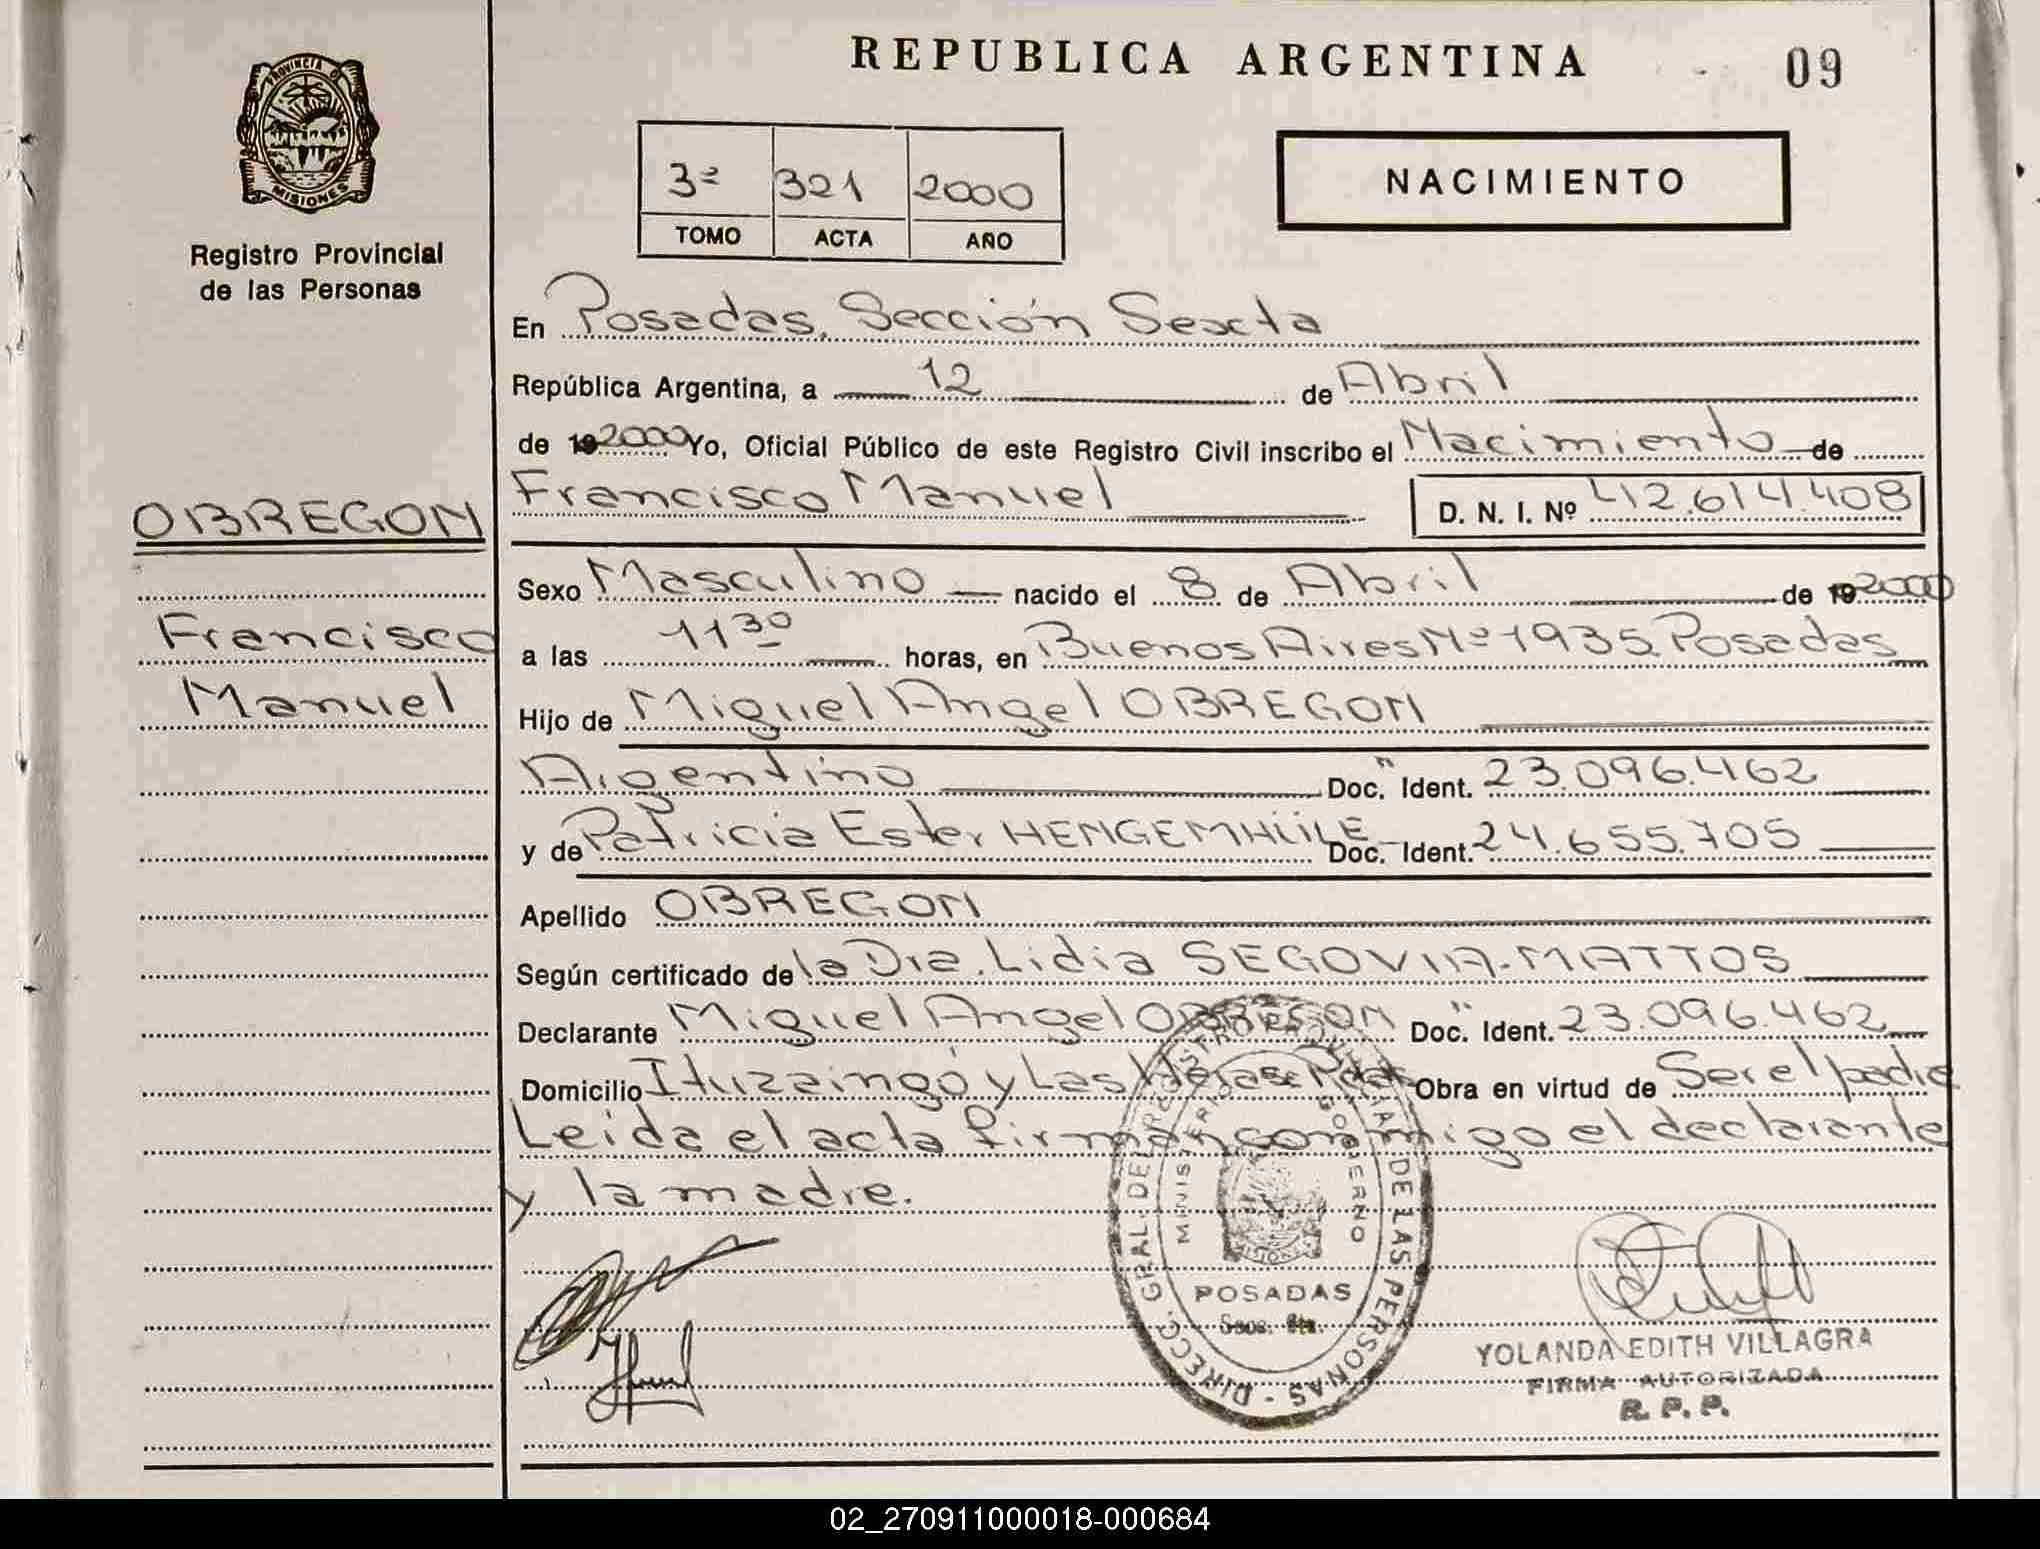 REPUBLICA ARGENTINA
09
PROVINCIA D
MISIONES
Registro Provincial
de las Personas
3ª 321 2000
TOMO ACTA AÑO
NACIMIENTO
En Posadas, Sección Sexta
República Argentina, a 12 de Abril
de 19 2000 Yo, Oficial Público de este Registro Civil inscribo el Nacimiento de
OBREGON
Francisco Manuel
D. N. I. Nº 42.614.408
Sexo Masculino nacido el 8 de Abril de 19 2000
Francisco
a las 11 30 horas, en Buenos Aires Nº 1935 Posadas
Manuel
Hijo de Miguel Angel OBREGON
Argentino Doc. Ident. 23.096.462
y de Patricia Ester HENGEMHÜLE Doc. Ident. 24.655.705
Apellido OBREGON
Según certificado de la Dra. Lidia SEGOVIA-MATTOS
Declarante Miguel Angel OBREGON Doc. Ident. 23.096.462
Domicilio Ituzaingó y Las Obra en virtud de Ser el padre
Leida el acta firman conmigo el declarante
y la madre.
DIRECC. GRAL. DEL REGISTRO PROVINCIAL DE LAS PERSONAS
MINISTERIO GOBIERNO
MISIONES
POSADAS
Secc. 6ta.
YOLANDA EDITH VILLAGRA
FIRMA AUTORIZADA
R. P. P.
02_270911000018-000684